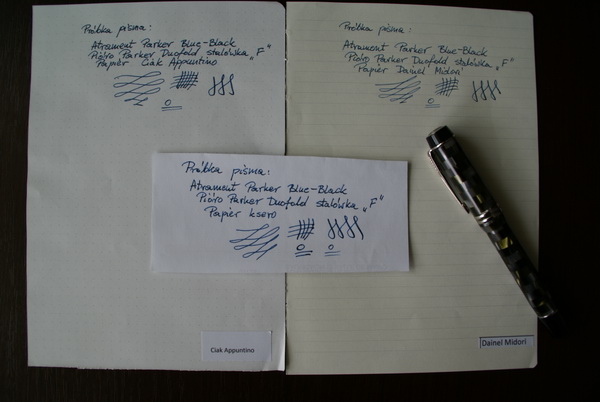 Próbka pisma:
Atrament Parker Blue-Black
Pióro Parker Duofold stalówka „F"
Papier Ciak Appuntino
Próbka pisma:
Atrament Parker Blue-Black
Pióro Parker Duofold stalówka „F"
Papier Dainel Midori
Próbka pisma:
Atrament Parker Blue-Black
Pióro Parker Duofold stalówka „F"
Papier ksero
Ciak Appuntino
Dainel Midori